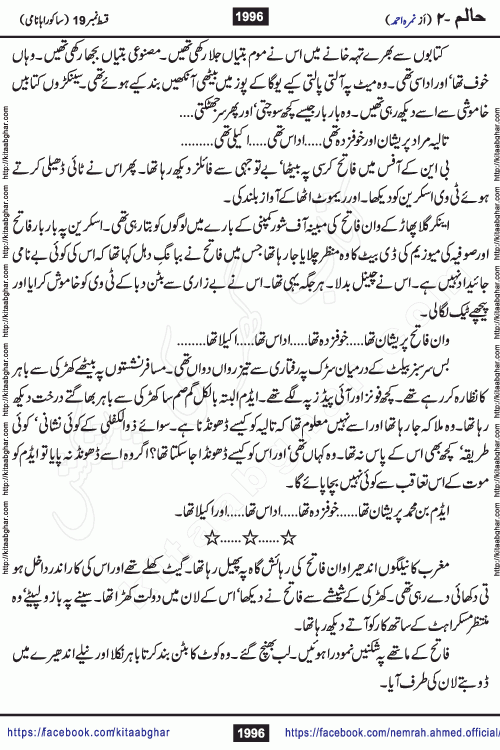 حالم -۲ (از نمرہ احمد)
1996
قسط نمبر 19 (سا کورا ہانامی)
کتابوں سے بھرے تہہ خانے میں اس نے موم بتیاں جلا رکھی تھیں۔ مصنوعی بتیاں بجھا رکھی تھیں۔ وہاں
خوف تھا' اور اداسی تھی۔ وہ میٹ پہ آلتی پالتی کیے یوگا کے پوز میں بیٹھی آنکھیں بند کیے ہوئے تھی سینکڑوں کتابیں
خاموشی سے اسے دیکھ رہی تھیں۔ وہ بار بار جیسے کچھ سوچتی' اور پھر سر جھٹکتی....
تالیہ مراد پریشان اور خوفزدہ تھی.....اداس تھی.....اکیلی تھی..........
بی این کے آفس میں فاتح کرسی پہ بیٹھا' بے توجہی سے فائلز دیکھ رہا تھا۔ پھر اس نے ٹائی ڈھیلی کرتے
ہوئے ٹی وی اسکرین کو دیکھا۔ اور ریموٹ اٹھا کے آواز بلند کی۔
اینکر گلا پھاڑ کے وان فاتح کی مبینہ آف شور کمپنی کے بارے میں لوگوں کو بتا رہی تھی۔ اسکرین پہ بار بار فاتح
اور صوفیہ کی میوزیم کی ڈی بیٹ کا وہ منظر چلایا جا رہا تھا جس میں فاتح نے ببانگِ دہل کہا تھا کہ اس کی کوئی بے نامی
جائیداد نہیں ہے۔ اس نے چینل بدلا۔ ہر جگہ یہی تھا۔ اس نے بے زاری سے بٹن دبا کے ٹی وی کو خاموش کرایا اور
پیچھے ٹیک لگا لی۔
وان فاتح پریشان تھا.....خوفزدہ تھا.....اداس تھا.....اکیلا تھا........
بس سرسبز بیلٹ کے درمیان سڑک پہ رفتاری سے تیز رواں دواں تھی۔ مسافر نشستوں پہ بیٹھے کھڑکی سے باہر
کا نظارہ کر رہے تھے۔ کچھ فونز اور آئی پیڈز پہ لگے تھے۔ ایڈم البتہ بالکل گم صم سا کھڑکی سے باہر بھاگتے درخت دیکھ
رہا تھا۔ وہ ملاکہ جا رہا تھا اور اسے نہیں معلوم تھا کہ تالیہ کو کیسے ڈھونڈنا ہے۔ سوائے ذوالکفلی کے کوئی نشانی' کوئی
طریقہ' کچھ بھی اس کے پاس نہ تھا۔ وہ کہاں تھی' اور اس کو کیسے ڈھونڈا جا سکتا تھا؟ اگر وہ اسے ڈھونڈ نہ پایا تو ایڈم کو
موت کے اس تعاقب سے کوئی نہیں بچا پائے گا۔
ایڈم بن محمد پریشان تھا......خوفزدہ تھا.....اداس تھا.....اور اکیلا تھا۔
☆......☆......☆
مغرب کا نیلگوں اندھیرا وان فاتح کی رہائش گاہ پہ پھیل رہا تھا۔ گیٹ کھلے تھے اور اس کی کار اندر داخل ہو
تی دکھائی دے رہی تھی۔ کھڑکی کے شیشے سے فاتح نے دیکھا' اس کے لان میں دولت کھڑا تھا۔ سینے پہ بازو لپیٹے' وہ
منتظر مسکراہٹ کے ساتھ کار کو آتے دیکھ رہا تھا۔
فاتح کے ماتھے پہ شکنیں نمودار ہوئیں۔ لب بھنچ گئے۔ وہ کوٹ کا بٹن بند کرتا باہر نکلا اور نیلے اندھیرے میں
ڈوبتے لان کی طرف آیا۔
https://facebook.com/kitaabghar
1996
https://facebook.com/nemrah.ahmed.official/
http://kitaabghar.com http://kitaabghar.com http://kitaabghar.com http://kitaabghar.com http://kitaabghar.com
http://kitaabghar.com http://kitaabghar.com http://kitaabghar.com http://kitaabghar.com http://kitaabghar.com